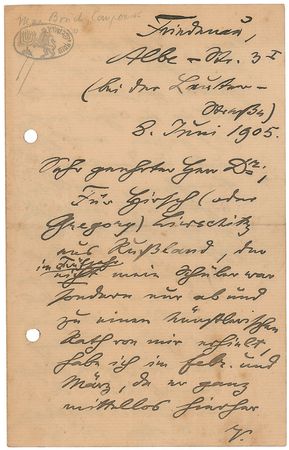 Max Bruch Composer
Friedenau,
Albe-Str. 3 I
(bei der Lauter-
Straße)
8. Juni 1905.
Sehr geehrter Herr Dr.,
Für Hirsch (oder
Gregory)
aus Rußland, der
im
nicht mein Schüler war
sondern nur ab und
zu einen künstlerischen
Rath von mir erhielt,
habe ich im Febr. und
März, da er ganz
mittellos hierher